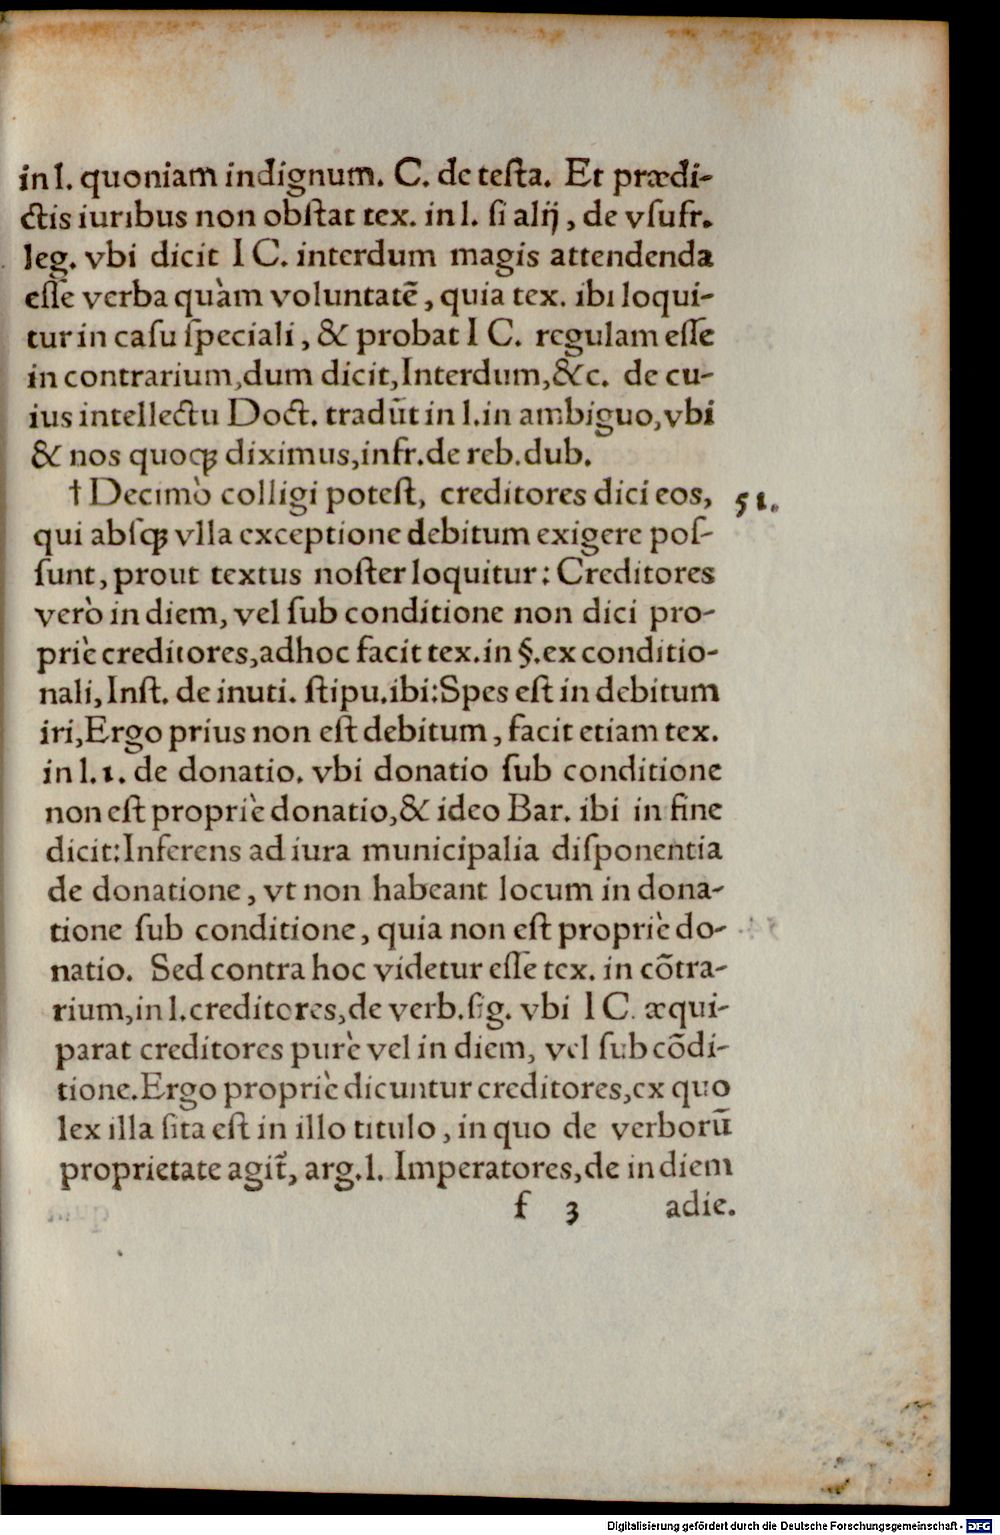 in l. quoniam indignum. C. de teſta. Et prædi-
ctis iuribus non obſtat tex. in l. ſi alij, de vſufr.
leg. vbi dicit I C. interdum magis attendenda
eſſe verba quàm voluntatē, quia tex. ibi loqui-
tur in caſu ſpeciali, & probat I C. regulam eſſe
in contrarium, dum dicit, Interdum, &c. de cu-
ius intellectu Doct. tradūt in l. in ambiguo, vbi
& nos quoqꝫ diximus, infr. de reb. dub.
† Decimò colligi poteſt, creditores dici eos, 51.
qui abſqꝫ vlla exceptione debitum exigere poſ-
ſunt, prout textus noſter loquitur: Creditores
verò in diem, vel ſub conditione non dici pro-
priè creditores, adhoc facit tex. in §. ex conditio-
nali, Inſt. de inuti. ſtipu. ibi: Spes eſt in debitum
iri, Ergo prius non eſt debitum, facit etiam tex.
in l. 1. de donatio. vbi donatio ſub conditione
non eſt propriè donatio, & ideo Bar. ibi in fine
dicit: Inferens ad iura municipalia diſponentia
de donatione, vt non habeant locum in dona-
tione ſub conditione, quia non eſt propriè do-
natio. Sed contra hoc videtur eſſe tex. in cōtra-
rium, in l. creditores, de verb. ſig. vbi I C. æqui-
parat creditores purè vel in diem, vel ſub cōdi-
tione. Ergo propriè dicuntur creditores, ex quo
lex illa ſita eſt in illo titulo, in quo de verborū
proprietate agit᷑, arg. l. Imperatores, de in diem
f 3 adie.
Digitalisierung gefördert durch die Deutsche Forschungsgemeinschaft - DFG